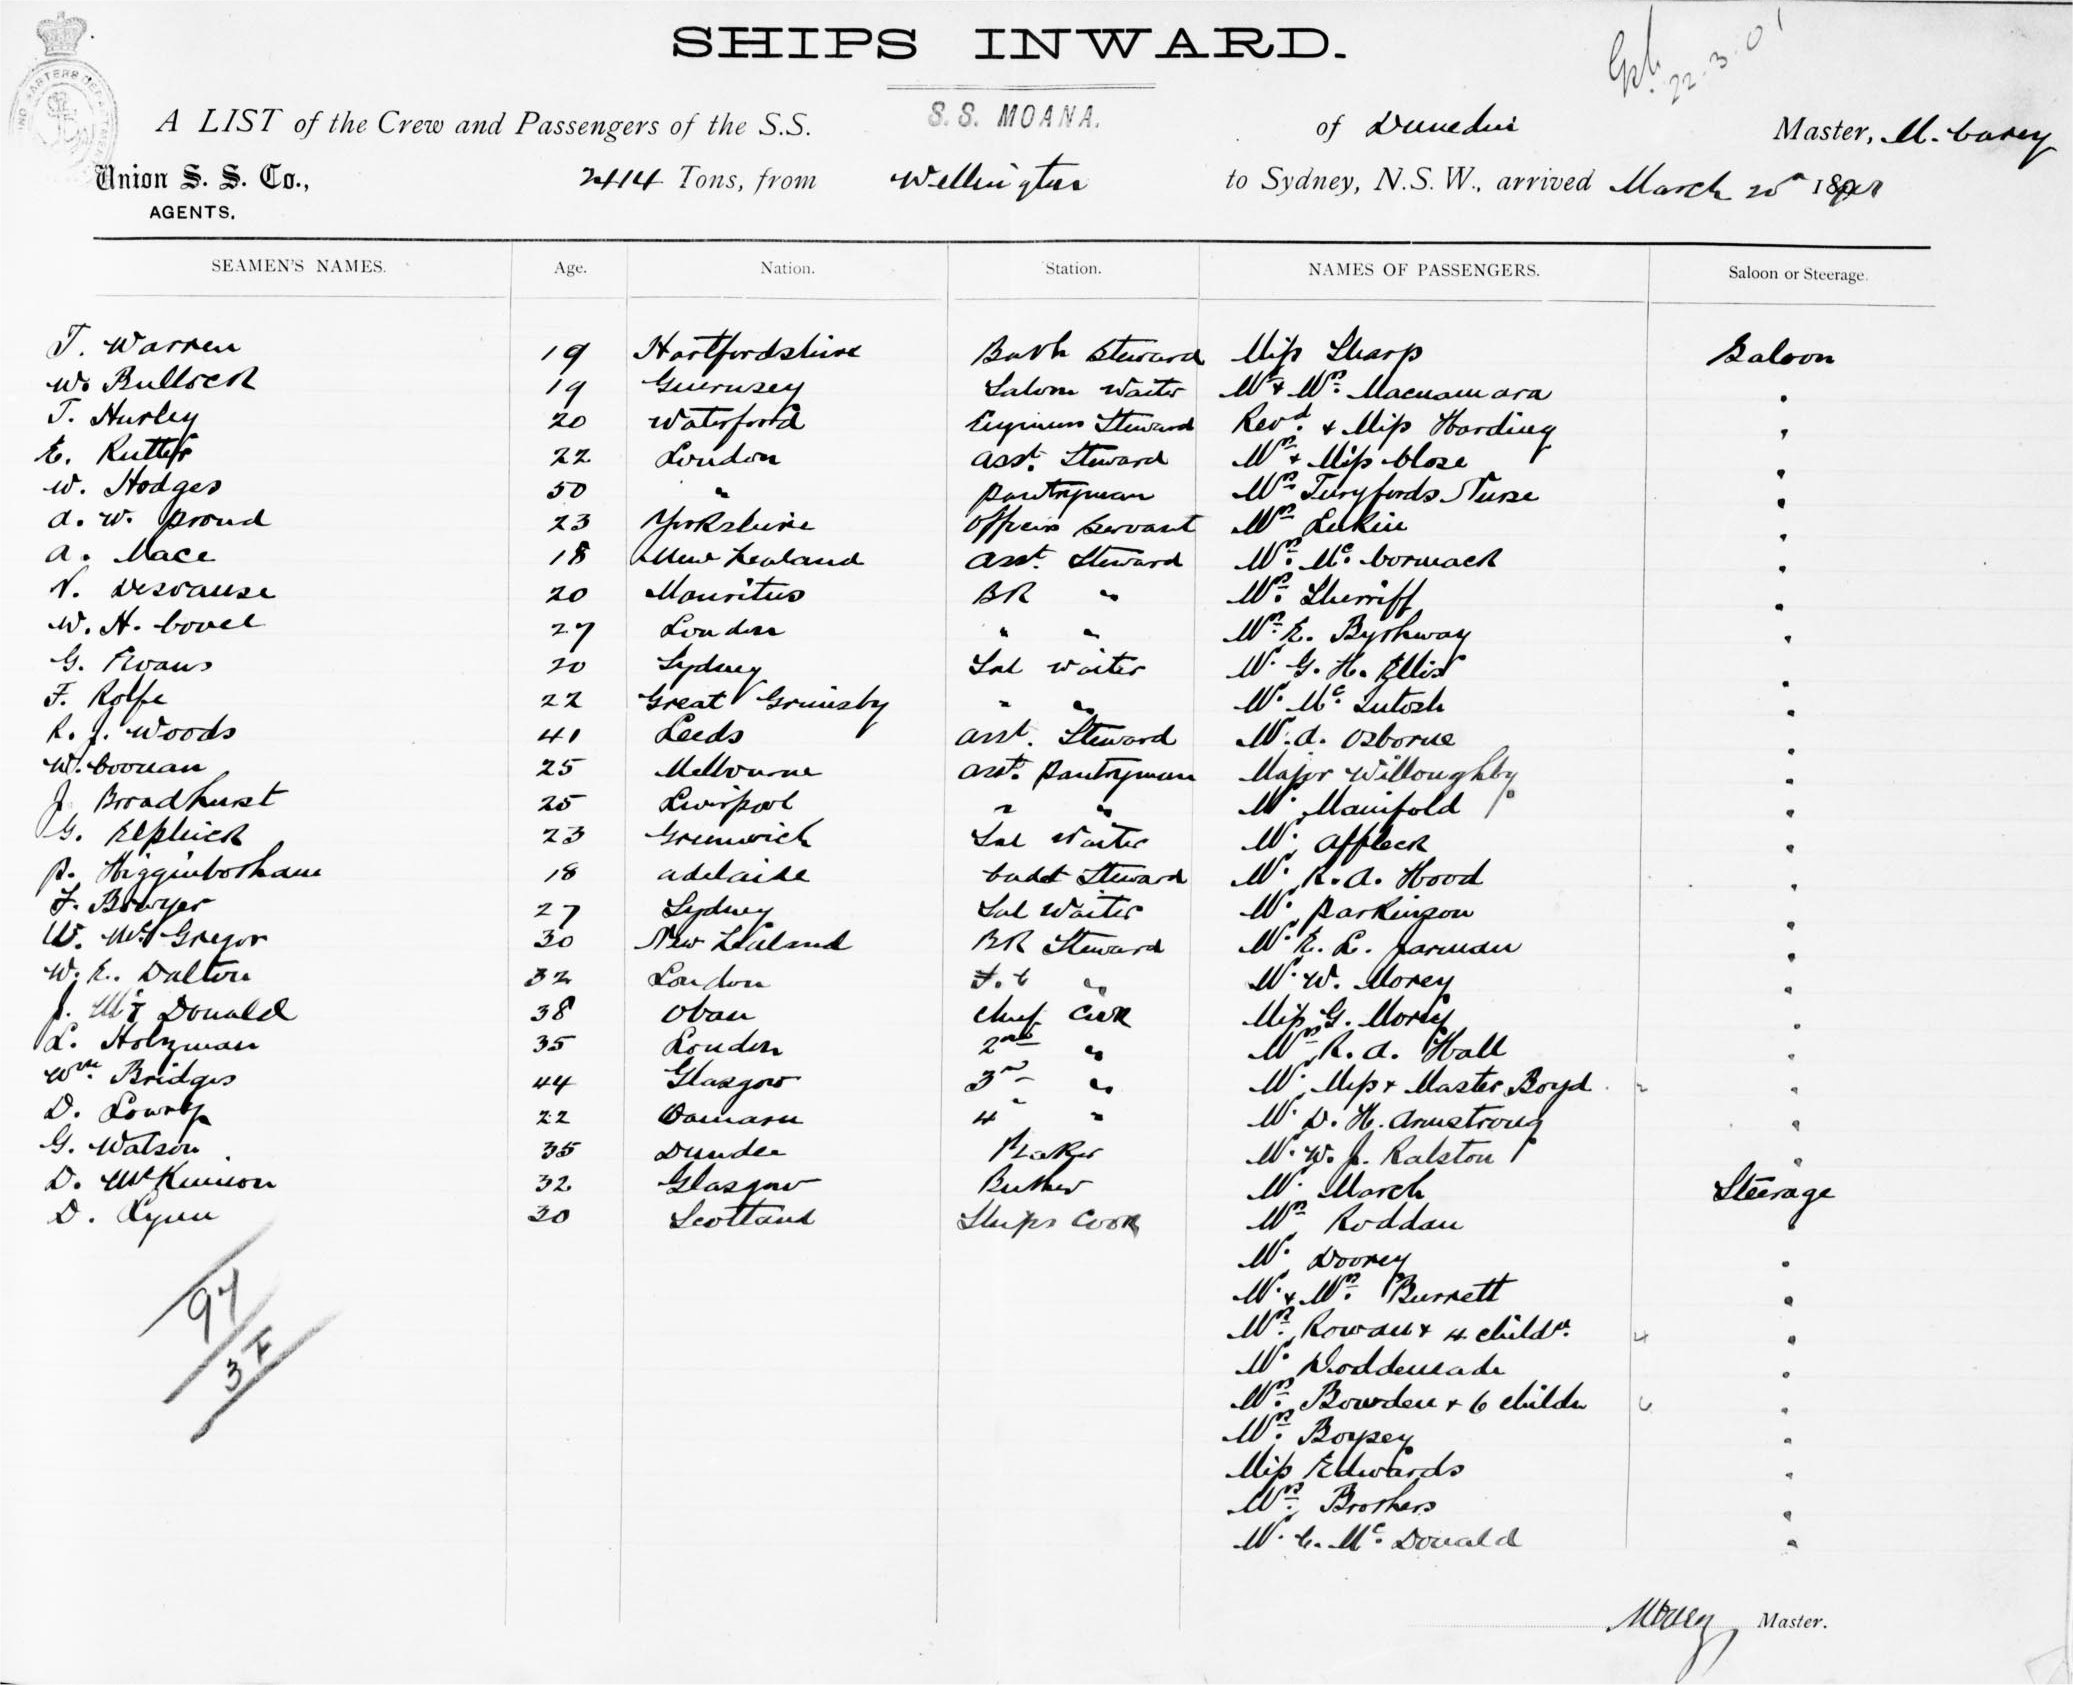 SHIPS INWARD.
22.3.01
A LIST of the Crew and Passengers of the S.S. S.S. MOANA. of Dunedin Master, M. Carey
Union S. S. Co., 2414 Tons, from Wellington to Sydney, N.S.W., arrived March 20th
AGENTS.
SEAMEN'S NAMES. Age. Nation. Station. NAMES OF PASSENGERS. Saloon or Steerage.
T. Warren 19 Hartfordshire Bath Steward Miss Sharp Saloon
W. Bullock 19 Guernsey Saloon Waiter Mr & Mrs. Macnamara "
T. Hurley 20 Waterford Steward Revd. & Miss Harding "
E. Rutter 22 London Asst. Steward Mrs & Miss Close "
W. Hodges 50 " Pantryman Mrs Nurse "
A. W. Proud 23 Yorkshire Officers Servant Mrs Lukin "
A. Mace 18 New Zealand Asst. Steward Mrs. Mc. Cormack "
N. 20 Mauritus BR " Mrs. Sherriff "
W. H. Covel 27 London " " Mrs. E. Byshway "
G. Evans 20 Sydney Sal Waiter Mr. G. H. Ellis "
F. Rolfe 22 Great Grimsby " " Mr. Mc. Intosh "
R. J. Woods 41 Leeds Asst. Steward Mr. A. Osborne "
W. Coonan 25 Melbourne Asst. Pantryman Major Willoughby "
J Broadhurst 25 Liverpool " " Mr. Manifold "
G. Elphick 23 Greenwich Sal Waiter Mr. Affleck "
P. Higginbotham 18 Adelaide Cadet Steward Mr. R. A. Hood "
F. Bowyer 27 Sydney Sal Waiter Mr. Parkinson "
W. McGregor 30 New Zealand BR Steward Mr. E. L. Jarman "
W. E. Dalton 32 London F.C " Mr. W. Morey "
J. Mc Donald 38 Oban Chief Cook Miss G. Morey "
L. Holzman 35 London 2nd " Mrs R. A. Hall "
Wm. Bridges 44 Glasgow 3rd " Mr. Miss & Master Boyd 2 "
D. Lowry 22 Oamaru 4 " Mr. D. H. Armstrong "
G. Watson 35 Dundee Baker Mr. W. J. Ralston "
D. McKinnon 32 Glasgow Butcher Mr. March Steerage
D. Lynn 30 Scotland Ships Cook Mrs Roddan "
Mr. Doorey "
Mr. & Mrs. Burrett "
Mrs. Rowan & 4 childn. 4 "
Mr. "
Mrs. Bowden & 6 childn 6 "
Mrs. Boysey "
Miss Edwards "
Mrs. Brothers "
Mr. C. Mc. Donald "
97
3 F
MCarey Master.